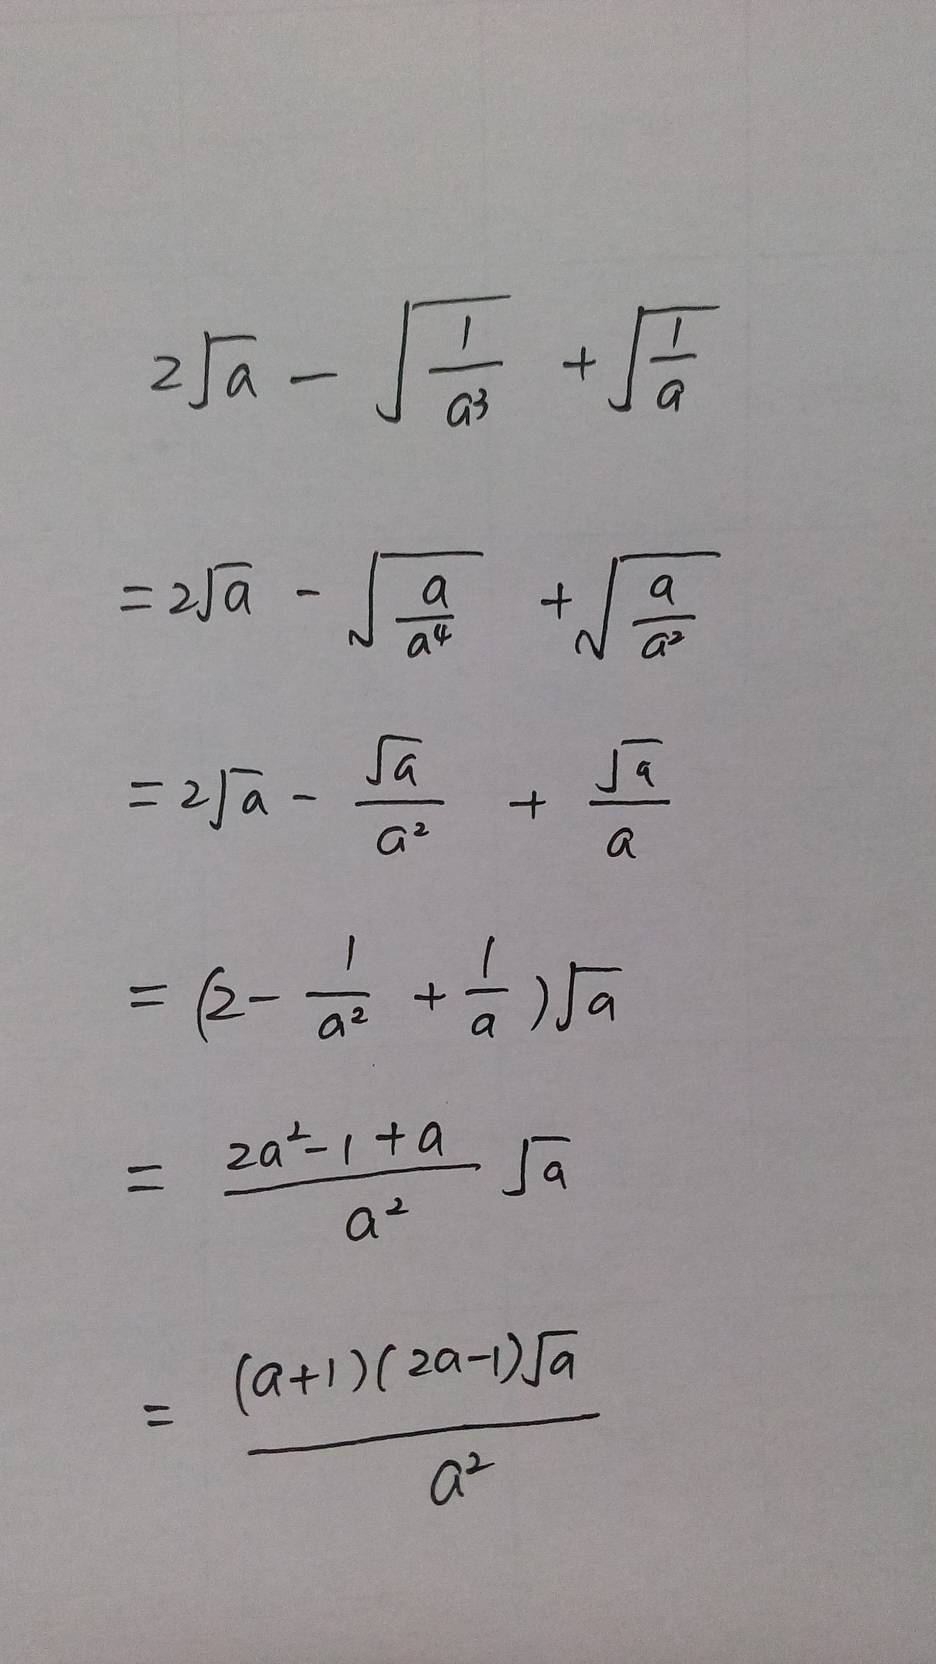 2√a − √(1/a³) + √(1/a)
=2√a − √(a/a⁴) + √(a/a²)
=2√a − √a/a² + √a/a
=(2 − 1/a² + 1/a)√a
= (2a²−1+a)/a² √a
= (a+1)(2a−1)√a / a²